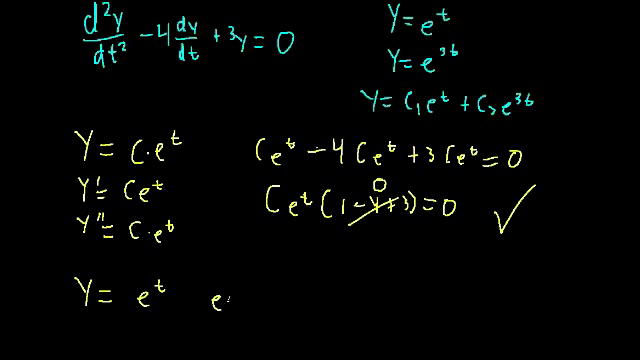 d²y/dt² - 4 dy/dt + 3y = 0
y = e^t
y = e^3t
y = c₁e^t + c₂e^3t
y = c·e^t
y' = ce^t
y'' = c·e^t
ce^t - 4ce^t + 3ce^t = 0
0
ce^t (1 - 4 + 3) = 0 ✓
y = e^t e